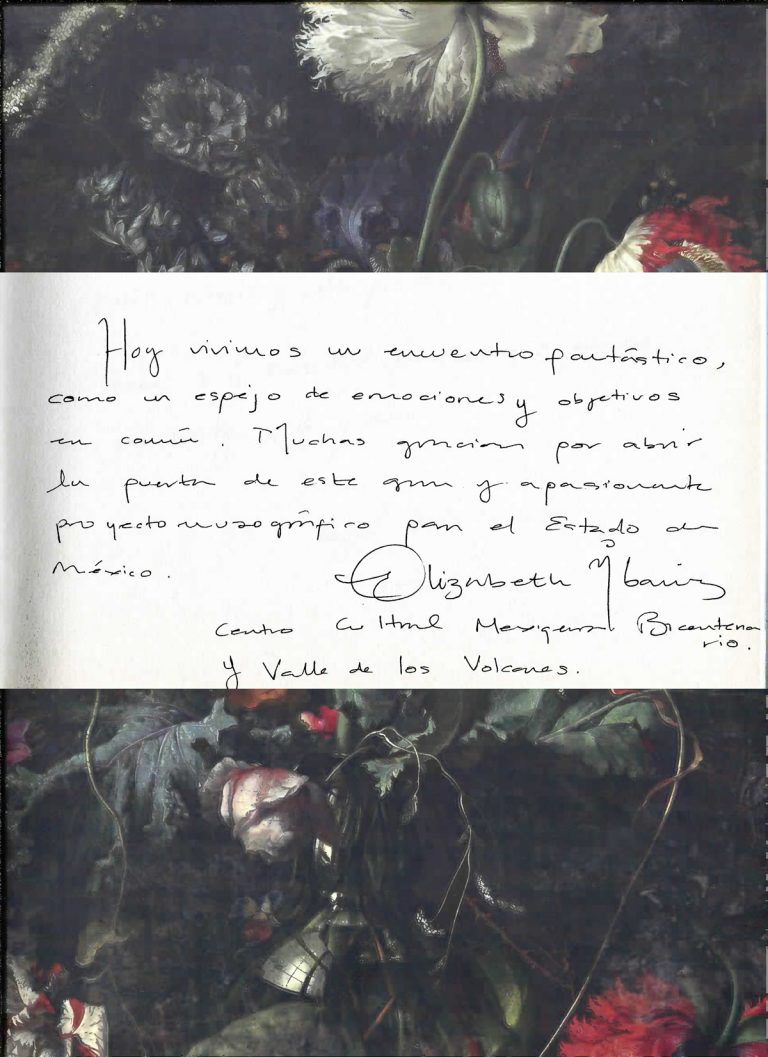 Hoy vivimos un encuentro fantástico,
como un espejo de emociones y objetivos
en común. Muchas gracias por abrir
la puerta de este gran y apasionante
proyecto museográfico para el Estado de
México.
Elizabeth
Centro Cultural Mexiquense Bicentena
rio.
y Valle de los Volcanes.